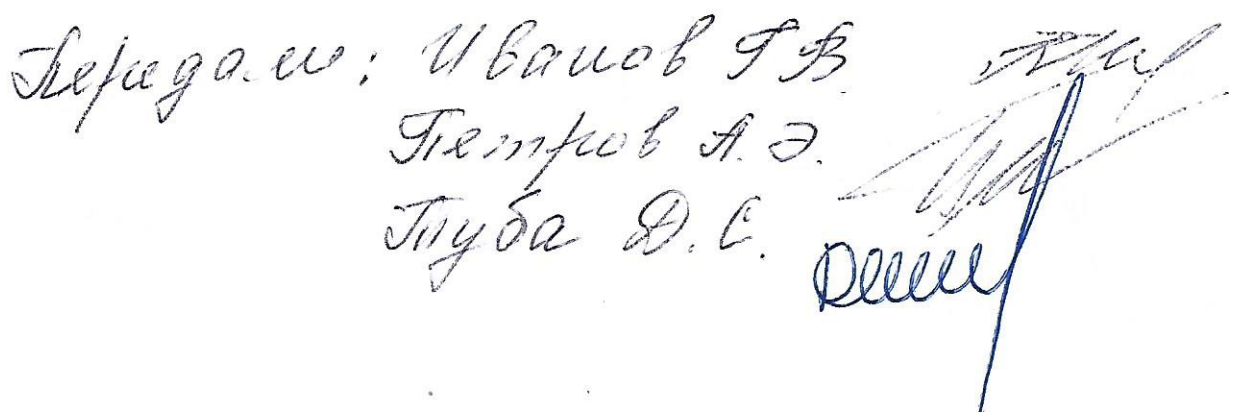 Передали: Иванов Г.В.
Петров А.Э.
Туба Д.С.